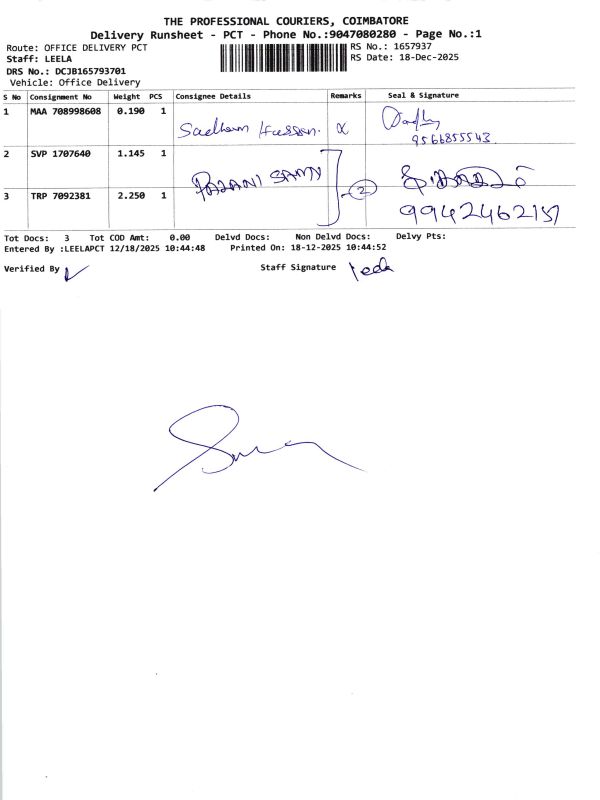 THE PROFESSIONAL COURIERS, COIMBATORE
Delivery Runsheet - PCT - Phone No.:9047080280 - Page No.:1
Route: OFFICE DELIVERY PCT
RS No.: 1657937
Staff: LEELA
RS Date: 18-Dec-2025
DRS No.: DCJB165793701
Vehicle: Office Delivery
S No Consignment No Weight PCS Consignee Details Remarks Seal & Signature
1 MAA 708998608 0.190 1 Sadham Hussen.
9566855543
2 SVP 1707640 1.145 1 PALANI SAMY
2
3 TRP 7092381 2.250 1
Tot Docs: 3 Tot COD Amt: 0.00 Delvd Docs: Non Delvd Docs: Delvy Pts:
Entered By :LEELAPCT 12/18/2025 10:44:48 Printed On: 18-12-2025 10:44:52
Verified By Staff Signature Leela